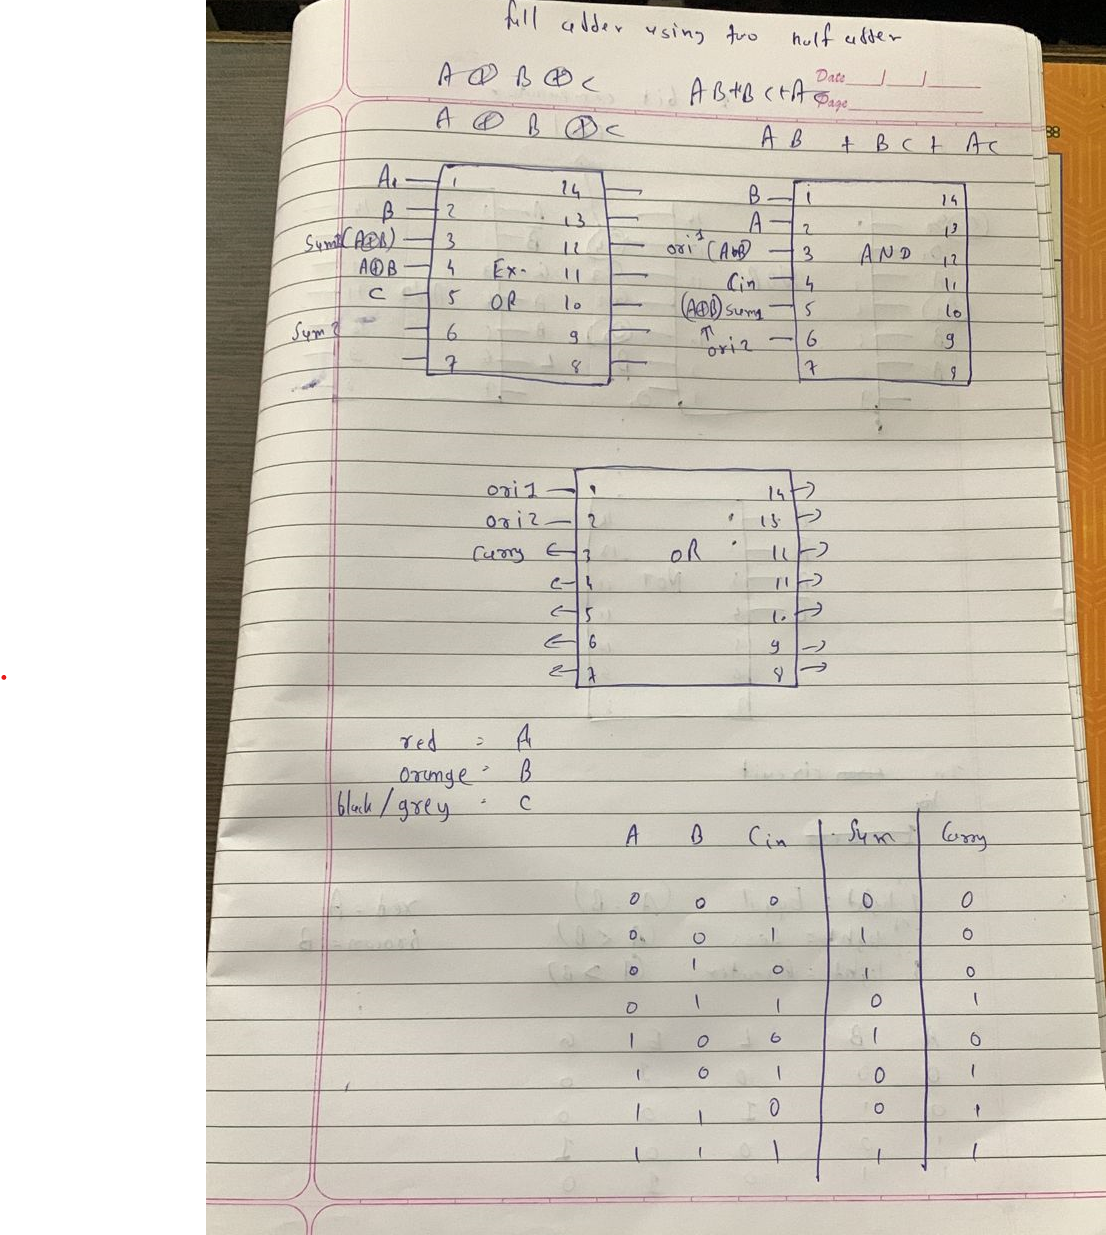 full adder using two half adder
A ⊕ B ⊕ C
AB+BC+AC
Date
Page
A ⊕ B ⊕ C
AB + BC + AC
A 1 14
B 2 13
Sum1(A⊕B) 3 12
A⊕B 4 Ex- 11
C 5 OR 10
Sum2 6 9
7 8
B 1 14
A 2 13
ori1 3 AND 12
Cin 4 11
(A⊕B) sum1 5 10
ori2 6 9
7 8
ori1 1 14
ori2 2 13
Carry 3 OR 12
4 11
5 10
6 9
7 8
red = A
orange = B
black/grey = C
A B Cin Sum Carry
0 0 0 0 0
0 0 1 1 0
0 1 0 1 0
0 1 1 0 1
1 0 0 1 0
1 0 1 0 1
1 1 0 0 1
1 1 1 1 1